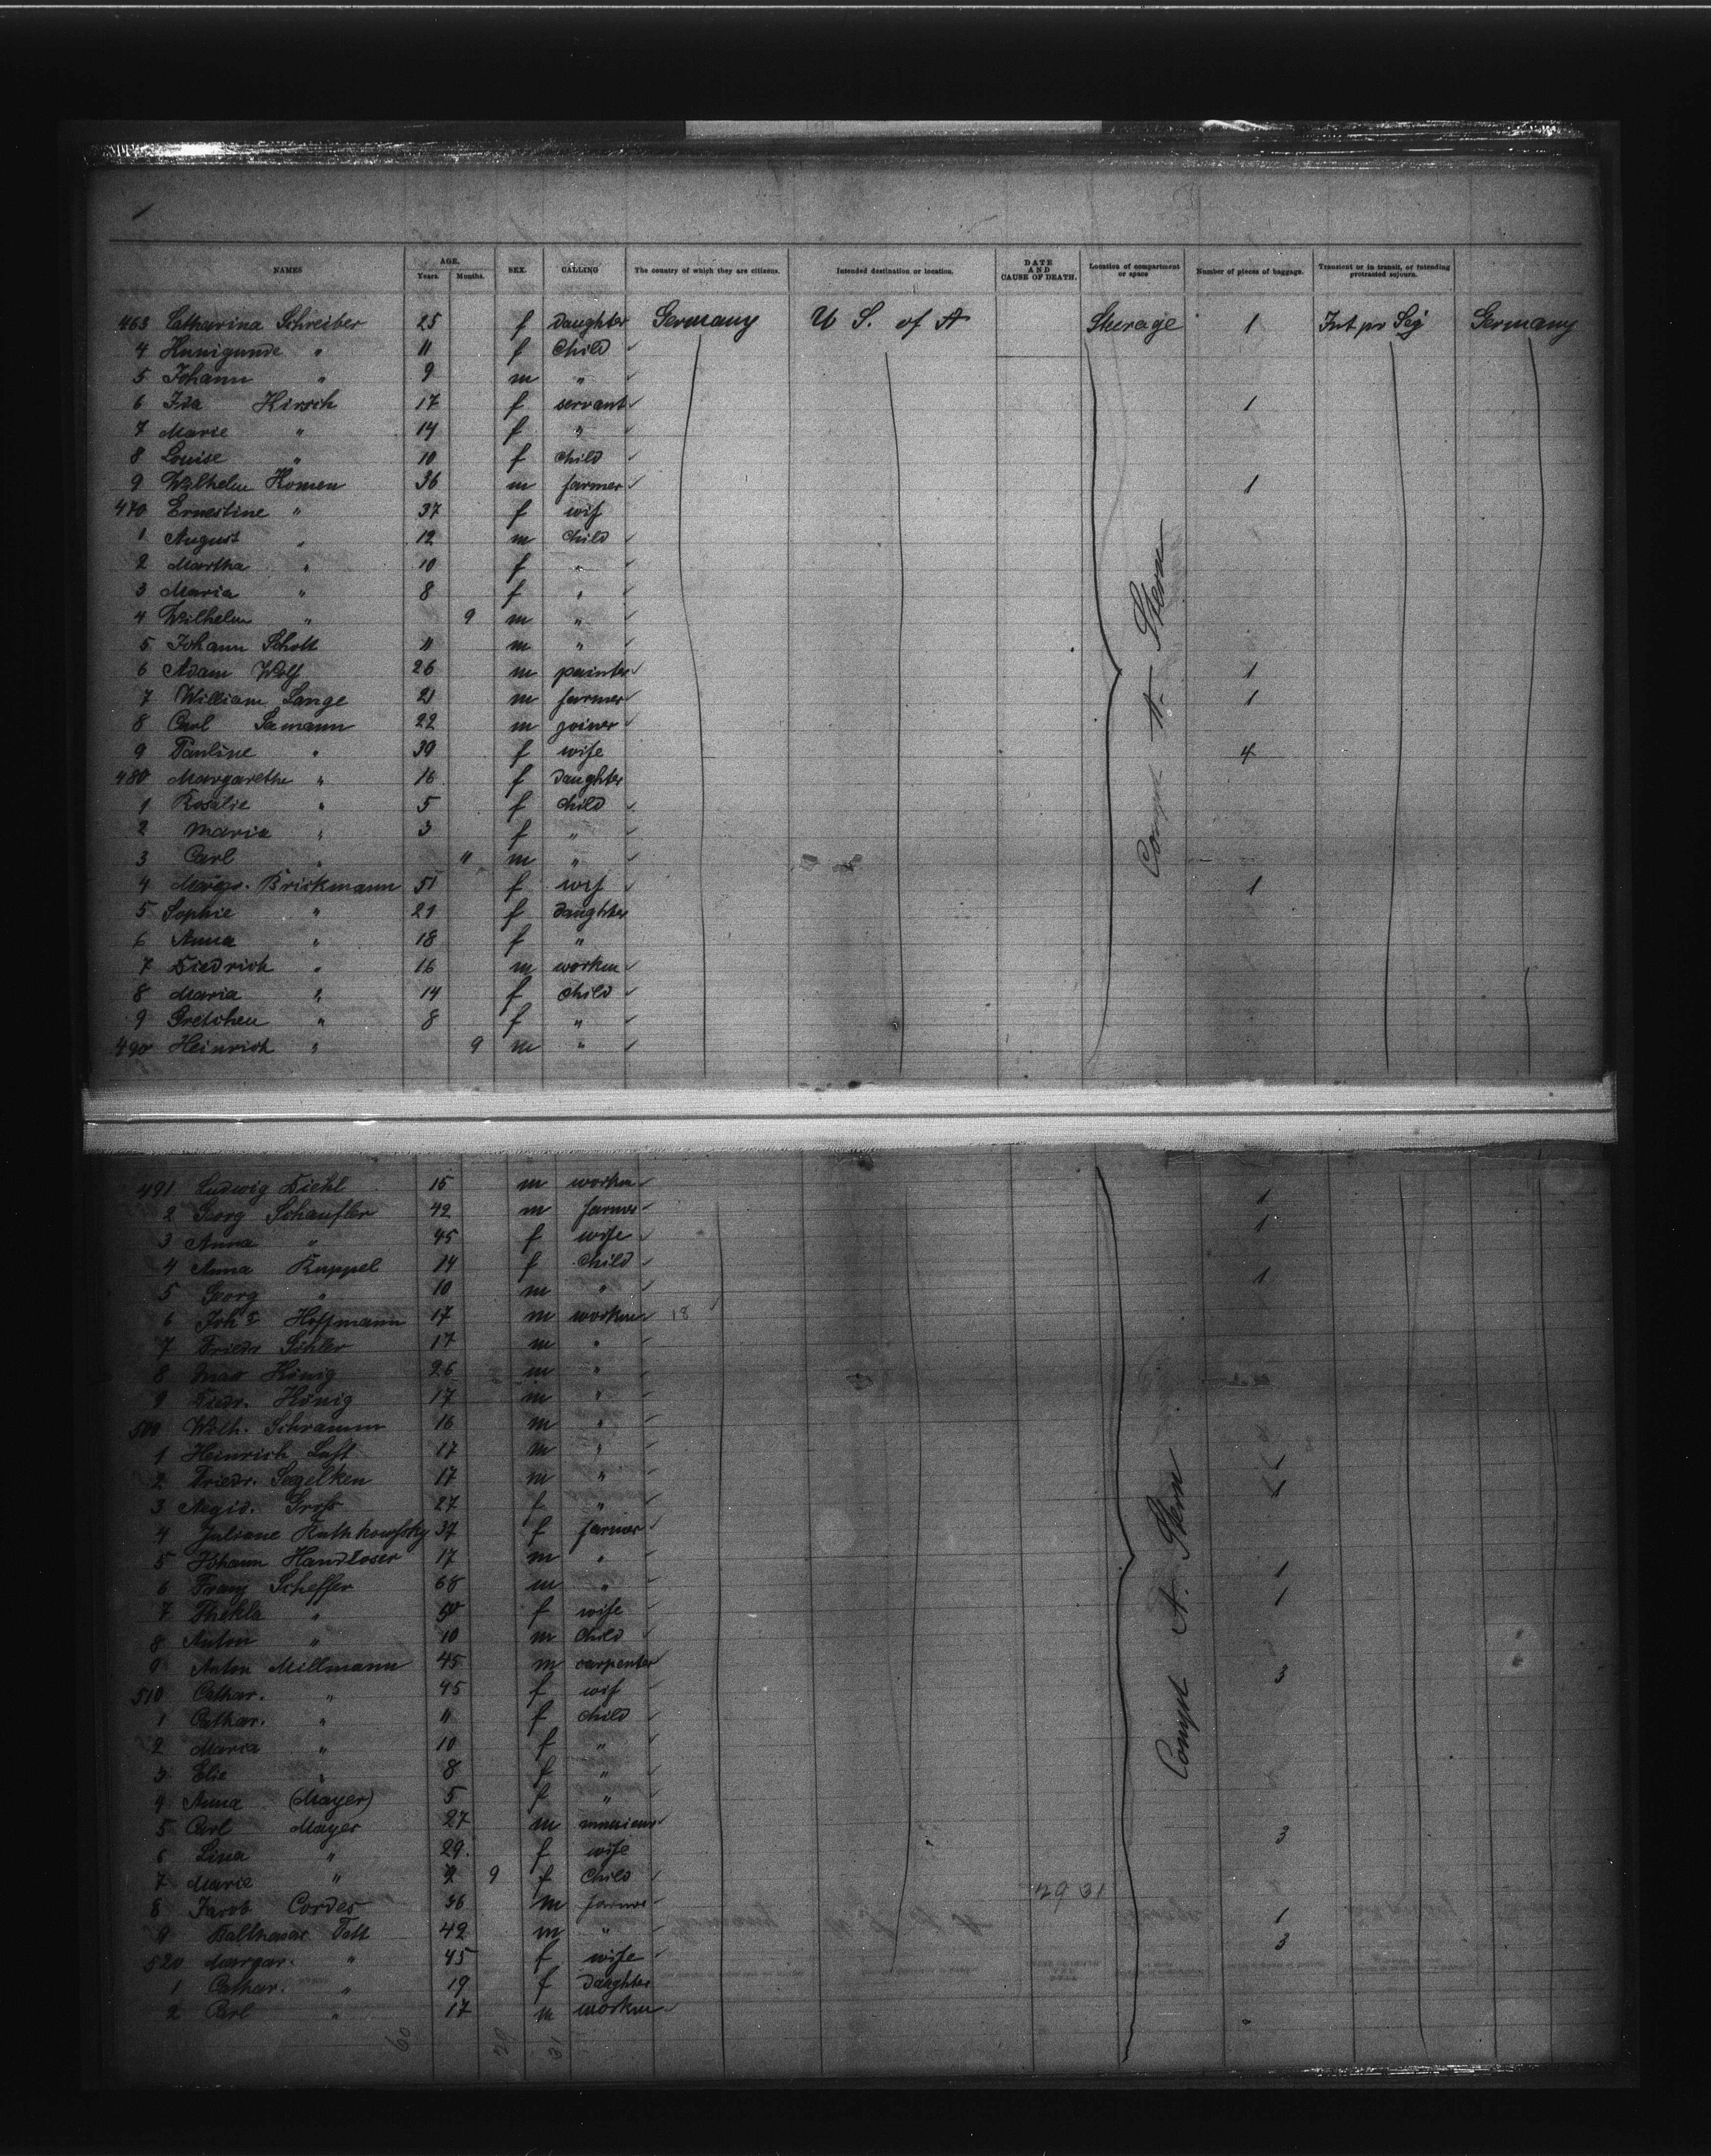 NAMES AGE. Years. Months. SEX. CALLING The country of which they are citizens. Intended destination or location. DATE AND CAUSE OF DEATH. Location of compartment or space Number of pieces of baggage. Transient or in transit, or intending protracted sojourn.
463 Catharina Schreiber 25 f daughter Germany U S. of A Steerage 1 Int pr Sej Germany
4 Kunigunde " 11 f child
5 Johann " 9 m "
6 Ida Hirsch 17 f servant 1
7 Marie " 14 f "
8 Louise " 10 f child
9 Wilhelm Homen 36 m farmer 1
470 Ernestine " 37 f wif
1 August " 12 m child
2 Martha " 10 f "
3 Maria " 8 f "
4 Wilhelm " 9 m "
5 Johann Schott 11 m "
6 Adam Wolf 26 m painter 1
7 William Lange 21 m farmer 1
8 Carl Lamann 22 m joiner
9 Pauline " 39 f wife 4
480 Margarethe " 16 f daughter
1 Rosalie " 5 f child
2 Maria " 3 f "
3 Carl " 11 m "
4 Margr. Brickmann 51 f wif 1
5 Sophie " 21 f daughter
6 Anna " 18 f "
7 Diedrich " 16 m workm
8 Maria " 14 f child
9 Gretchen " 8 f "
490 Heinrich " 9 m "
Compt A. Stern
491 Ludwig Diehl 15 m workm 1
2 Georg Schaufler 42 m farmer 1
3 Anna " 45 f wife
4 Anna Ruppel 14 f child 1
5 Georg " 10 m "
6 Joh Hoffmann 17 m workm 18
7 Friedr Söhler 17 m "
8 Max König 26 m "
9 Diedr. König 17 m "
500 Wilh. Schramm 16 m "
1 Heinrich Luft 17 m "
2 Friedr. Seegelken 17 m " 1
3 Aegid. Gross 27 f " 1
4 Juliane Rathkowsky 37 f farmer
5 Johann Handloser 17 m "
6 Franz Scheffer 68 m " 1
7 Thekla " 50 f wife 1
8 Anton " 10 m child
9 Anton Millmann 45 m carpenter
510 Cathar. " 45 f wif 3
1 Cathar. " 11 f child
2 Maria " 10 f "
3 Elie " 8 f "
4 Anna (Mayer) 5 f "
5 Carl Mayer 27 m 3
6 Lina " 29 f wife
7 Marie " 9 f child
8 Jacob Cordes 36 m farmer 1
9 Balthasar Tott 42 m " 3
520 Margar. " 45 f wife
1 Cathar. " 19 f daughter
2 Carl " 17 m workm
Compt A. Stern
29 31
60 29 31